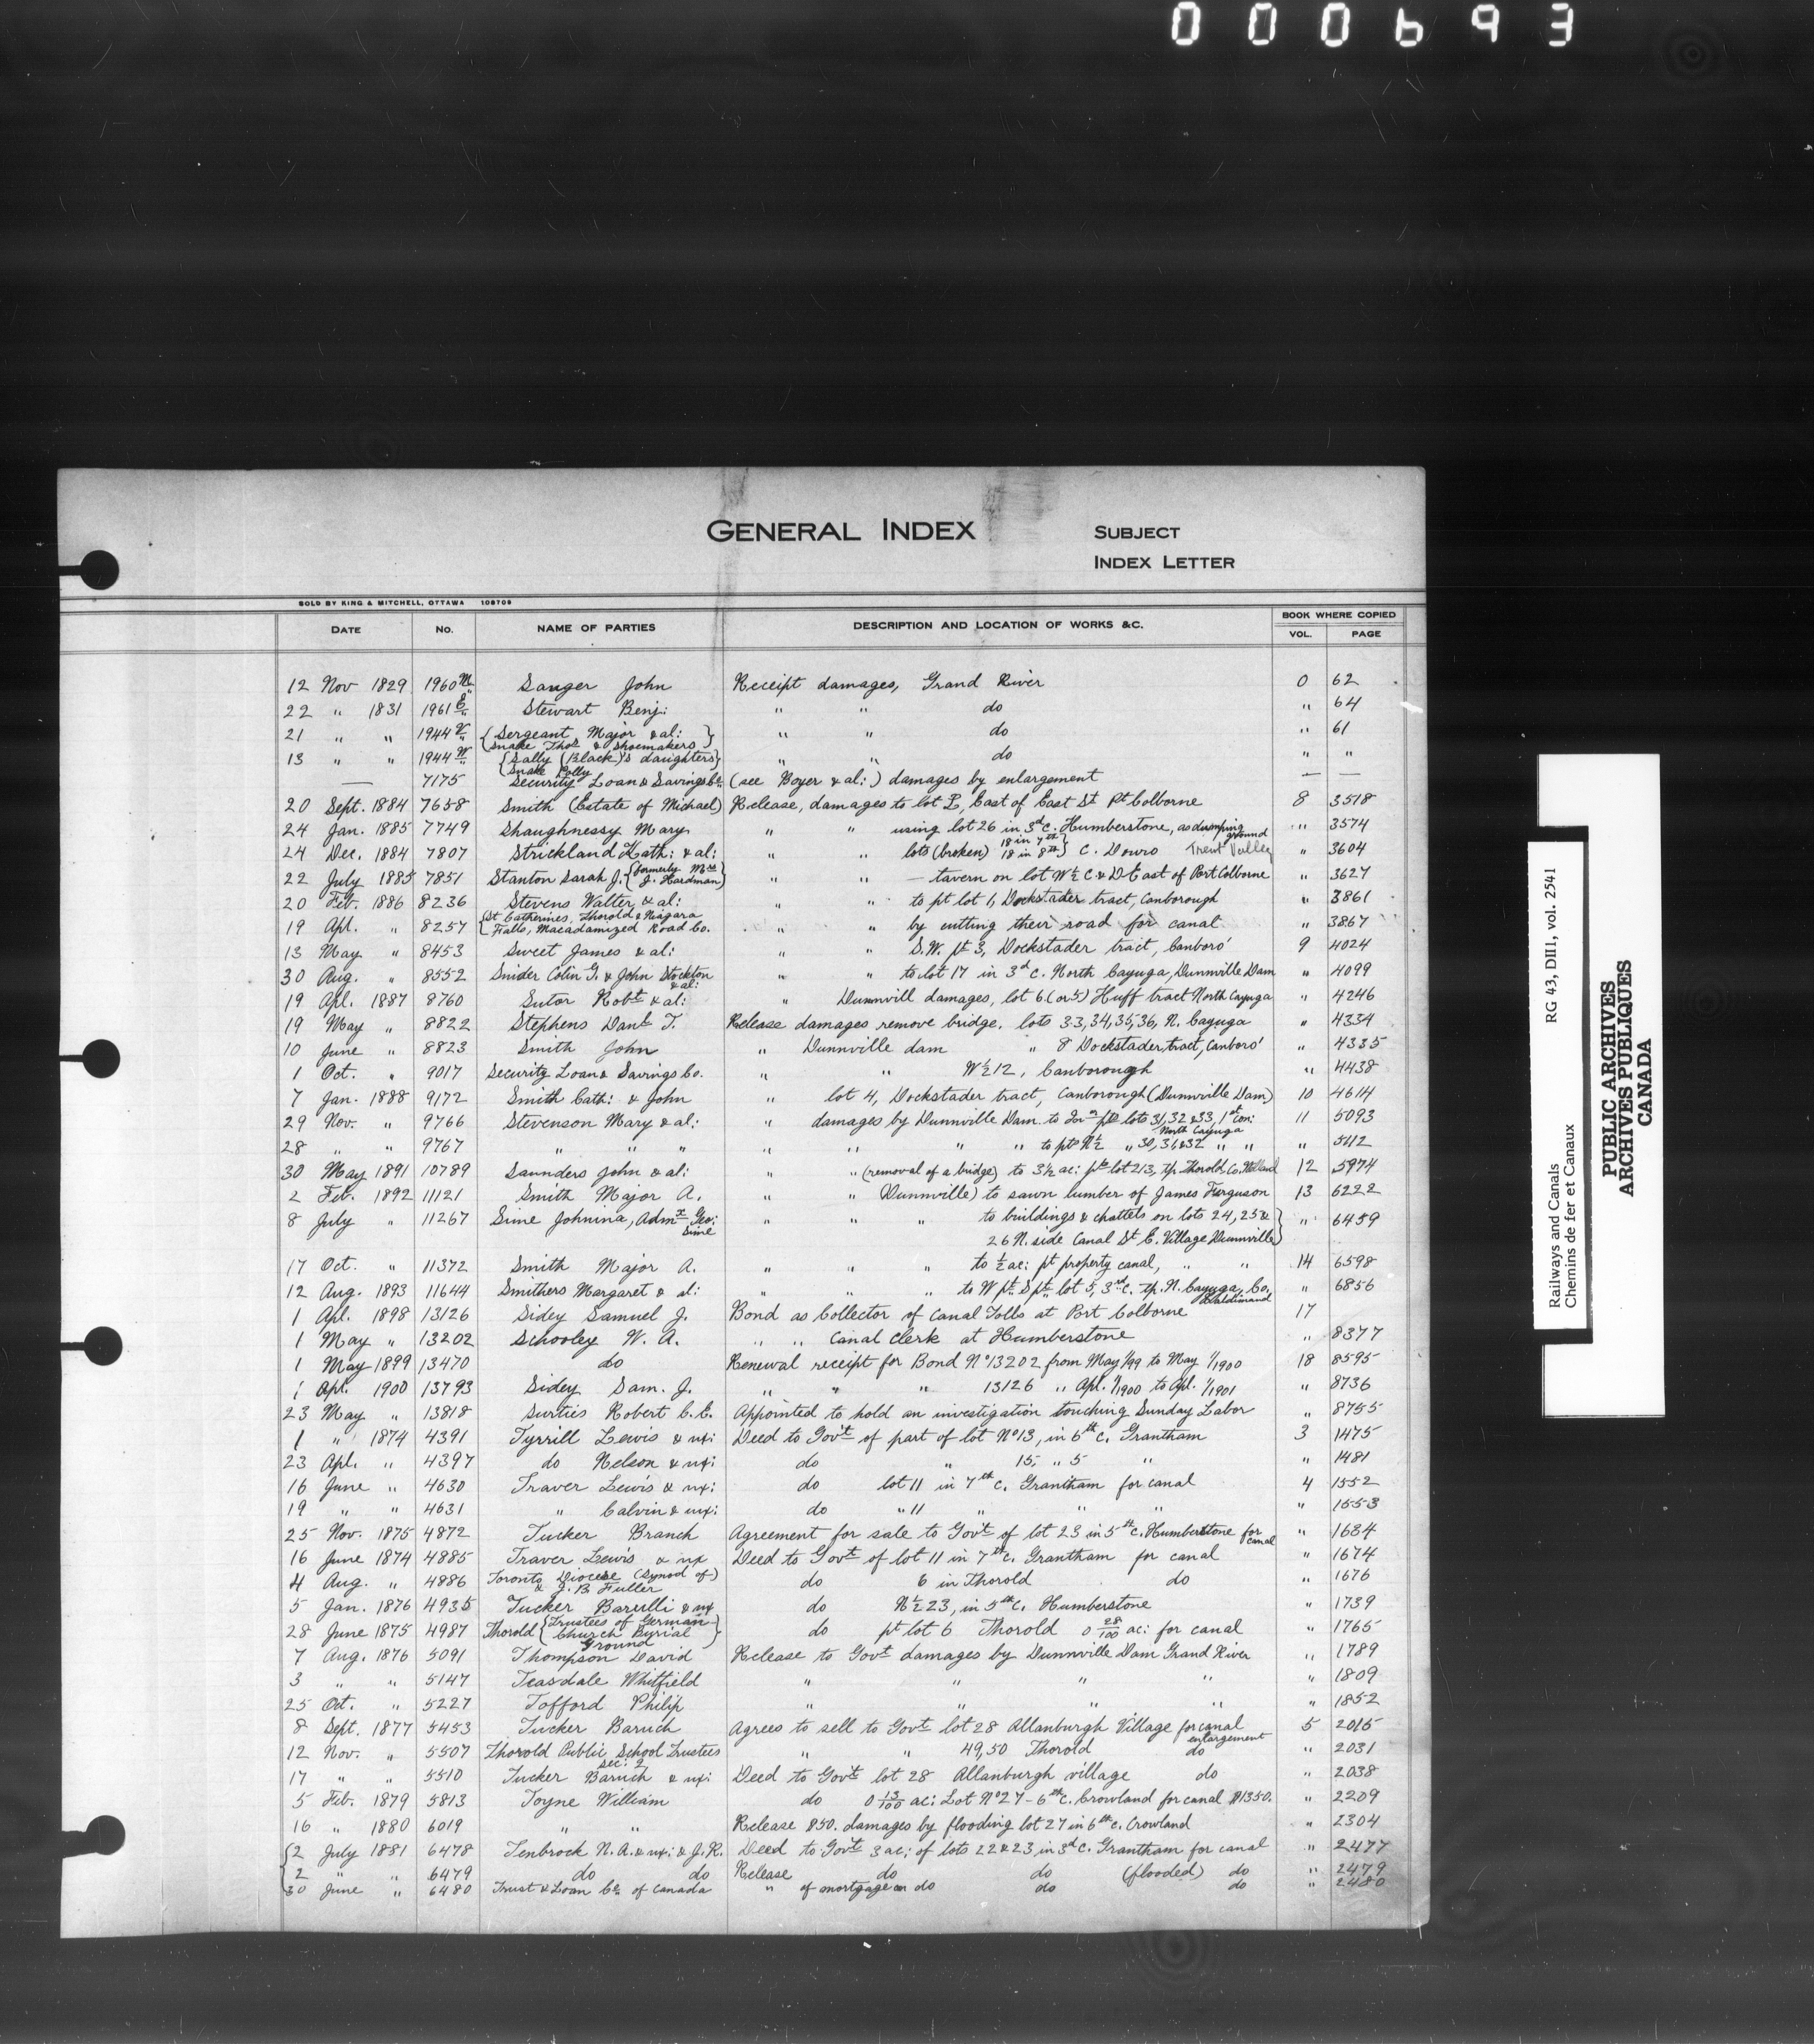 000693
GENERAL INDEX
SUBJECT
INDEX LETTER
SOLD BY KING & MITCHELL, OTTAWA 108709
DATE No. NAME OF PARTIES DESCRIPTION AND LOCATION OF WORKS &C. BOOK WHERE COPIED
VOL. PAGE
12 Nov 1829 1960 Sanger John Receipt damages, Grand River 0 62
22 " 1831 1961 Stewart Benj: " " do " 64
21 " " 1944 {Sergeant Major & al: } " " do " 61
Snake Thos & Shoemakers
13 " " 1944 {Sally (Black)'s daughters} " " do " "
Snake Polly
— 7175 Security Loan & Savings Co. (see Boyer & al:) damages by enlargement — —
20 Sept. 1884 7658 Smith (Estate of Michael) Release, damages to lot East of East St Pt Colborne 8 3518
24 Jan. 1885 7749 Shaughnessy Mary " " using lot 26 in 3d c. Humberstone, as dumping ground " 3574
24 Dec. 1884 7807 Strickland Kath: & al: " " lots (broken) 18 in 7th 18 in 8th} C. Douro Trent Valley " 3604
22 July 1885 7851 Stanton Sarah J. {formerly Mrs J. Hardman} " " — tavern on lot W½ C & D East of Port Colborne " 3627
20 Feb. 1886 8236 Stevens Walter & al: " " to pt lot 1, Dockstader tract, Canborough " 3861
19 Apl. " 8257 {St Catherines, Thorold & Niagara Falls, Macadamized Road Co. " " by cutting their road for canal " 3867
13 May " 8453 Sweet James & al: " " S.W. pt 3, Dockstader tract, Canboro' 9 4024
30 Aug. " 8552 Snider Colin G. & John Stockton & al: " " to lot 17 in 3d c. North Cayuga, Dunnville Dam " 4099
19 Apl. 1887 8760 Sutor Robt & al: " Dunnvill damages, lot 6 (or 5) Huff tract North Cayuga " 4246
19 May " 8822 Stephens Danl T. Release damages remove bridge. lots 33,34,35,36, N. Cayuga " 4334
10 June " 8823 Smith John " Dunnville dam " 8 Dockstader tract, Canboro' " 4335
1 Oct. " 9017 Security Loan & Savings Co. " " W½ 12, Canborough " 4438
7 Jan. 1888 9172 Smith Cath: & John " lot 4, Dockstader tract, Canborough (Dunnville Dam) 10 4614
29 Nov. " 9766 Stevenson Mary & al: " damages by Dunnville Dam. to pts lots 31,32 & 33, 1st Con: 11 5093
North Cayuga
28 " " 9767 " " " " " " " to pts N½ " 30,31&32 " " " 5112
30 May 1891 10789 Saunders John & al: " " (removal of a bridge) to 3½ ac: pt lot 213, tp. Thorold Co. Welland 12 5974
2 Feb. 1892 11121 Smith Major A. " " Dunnville) to sawn lumber of James Ferguson 13 6222
8 July " 11267 Sime Johnina, Admx Geo: Sime " " " to buildings & chattels on lots 24, 25 & " 6459
26 N. side Canal St E. Village Dunnville}
17 Oct. " 11372 Smith Major A. " " " to ½ ac: pt property canal, " " 14 6598
12 Aug. 1893 11644 Smithers Margaret & al: " " " to W pt S pt lot 5, 3rd c. tp. N. Cayuga, Co. Haldimand " 6856
1 Apl. 1898 13126 Sidey Samuel J. Bond as Collector of Canal Tolls at Port Colborne 17
1 May " 13202 Schooley W. A. " " Canal Clerk at Humberstone " 8377
1 May 1899 13470 do Renewal receipt for Bond No 13202 from May 1/99 to May 1/1900 18 8595
1 Apl. 1900 13793 Sidey Sam. J. " " " 13126 " Apl. 1/1900 to Apl. 1/1901 " 8736
23 May " 13818 Surties Robert C.E. Appointed to hold an investigation touching Sunday Labor " 8755
1 " 1874 4391 Tyrrill Lewis & ux: Deed to Gov't of part of lot No 13, in 6th c. Grantham 3 1475
23 Apl. " 4397 do Nelson & ux: do " 15, " 5 " " 1481
16 June " 4630 Traver Lewis & ux: do lot 11 in 7th c. Grantham for canal 4 1552
19 " " 4631 " Calvin & ux: do " 11 " " " " 1553
25 Nov. 1875 4872 Tucker Branch Agreement for sale to Gov't of lot 23 in 5th c. Humberstone for canal " 1634
16 June 1874 4885 Traver Lewis & ux Deed to Gov't of lot 11 in 7th c. Grantham for canal " 1674
4 Aug. " 4886 Toronto Diocese (Synod of) & J. B. Fuller do 6 in Thorold do " 1676
5 Jan. 1876 4935 Tucker Barulli & ux do N½ 23, in 5th c. Humberstone " 1739
28 June 1875 4987 Thorold {Trustees of German Church Burial Ground} do pt lot 6 Thorold 0 28/100 ac: for canal " 1765
7 Aug. 1876 5091 Thompson David Release to Gov't damages by Dunnville Dam Grand River " 1789
3 " " 5147 Teasdale Whitfield " " " " " 1809
25 Oct. " 5227 Tofford Philip " " " " " 1852
8 Sept. 1877 5453 Tucker Baruch Agrees to sell to Gov't lot 28 Allanburgh Village for canal enlargement 5 2015
12 Nov. " 5507 Thorold Public School Trustees sec: 2 " " 49,50 Thorold do " 2031
17 " " 5510 Tucker Baruch & ux: Deed to Gov't lot 28 Allanburgh village do " 2038
5 Feb. 1879 5813 Toyne William do 0 13/100 ac: Lot No 27 - 6th c. Crowland for canal $1350. " 2209
16 " 1880 6019 " " Release $50. damages by flooding lot 27 in 6th c. Crowland " 2304
{2 July 1881 6478 Tenbrock N. A. & ux: & J. R. Deed to Gov't 3 ac; of lots 22 & 23 in 3d c. Grantham for canal " 2477
2 " " 6479 do do Release do do (flooded) do " 2479
30 June " 6480 Trust & Loan Co. of Canada " of mortgage on do do do " 2480
Railways and Canals RG 43, DIII, vol. 2541
Chemins de fer et Canaux
PUBLIC ARCHIVES
ARCHIVES PUBLIQUES
CANADA